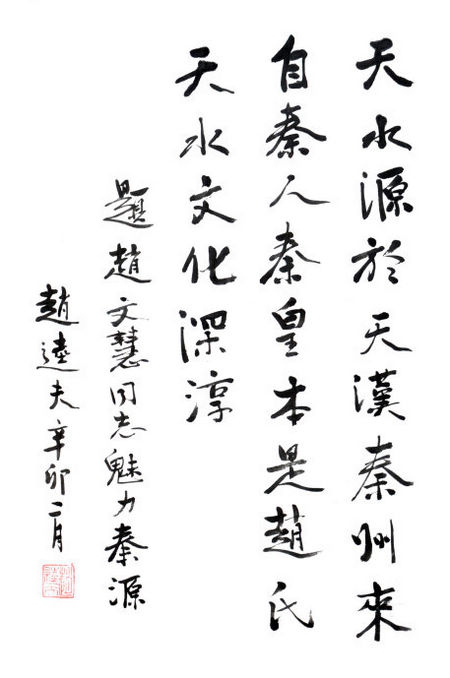 天水源於天漢秦州來
自秦人秦皇本是趙氏
天水文化深淳
題趙文慧同志魅力秦源
趙逵夫辛卯二月